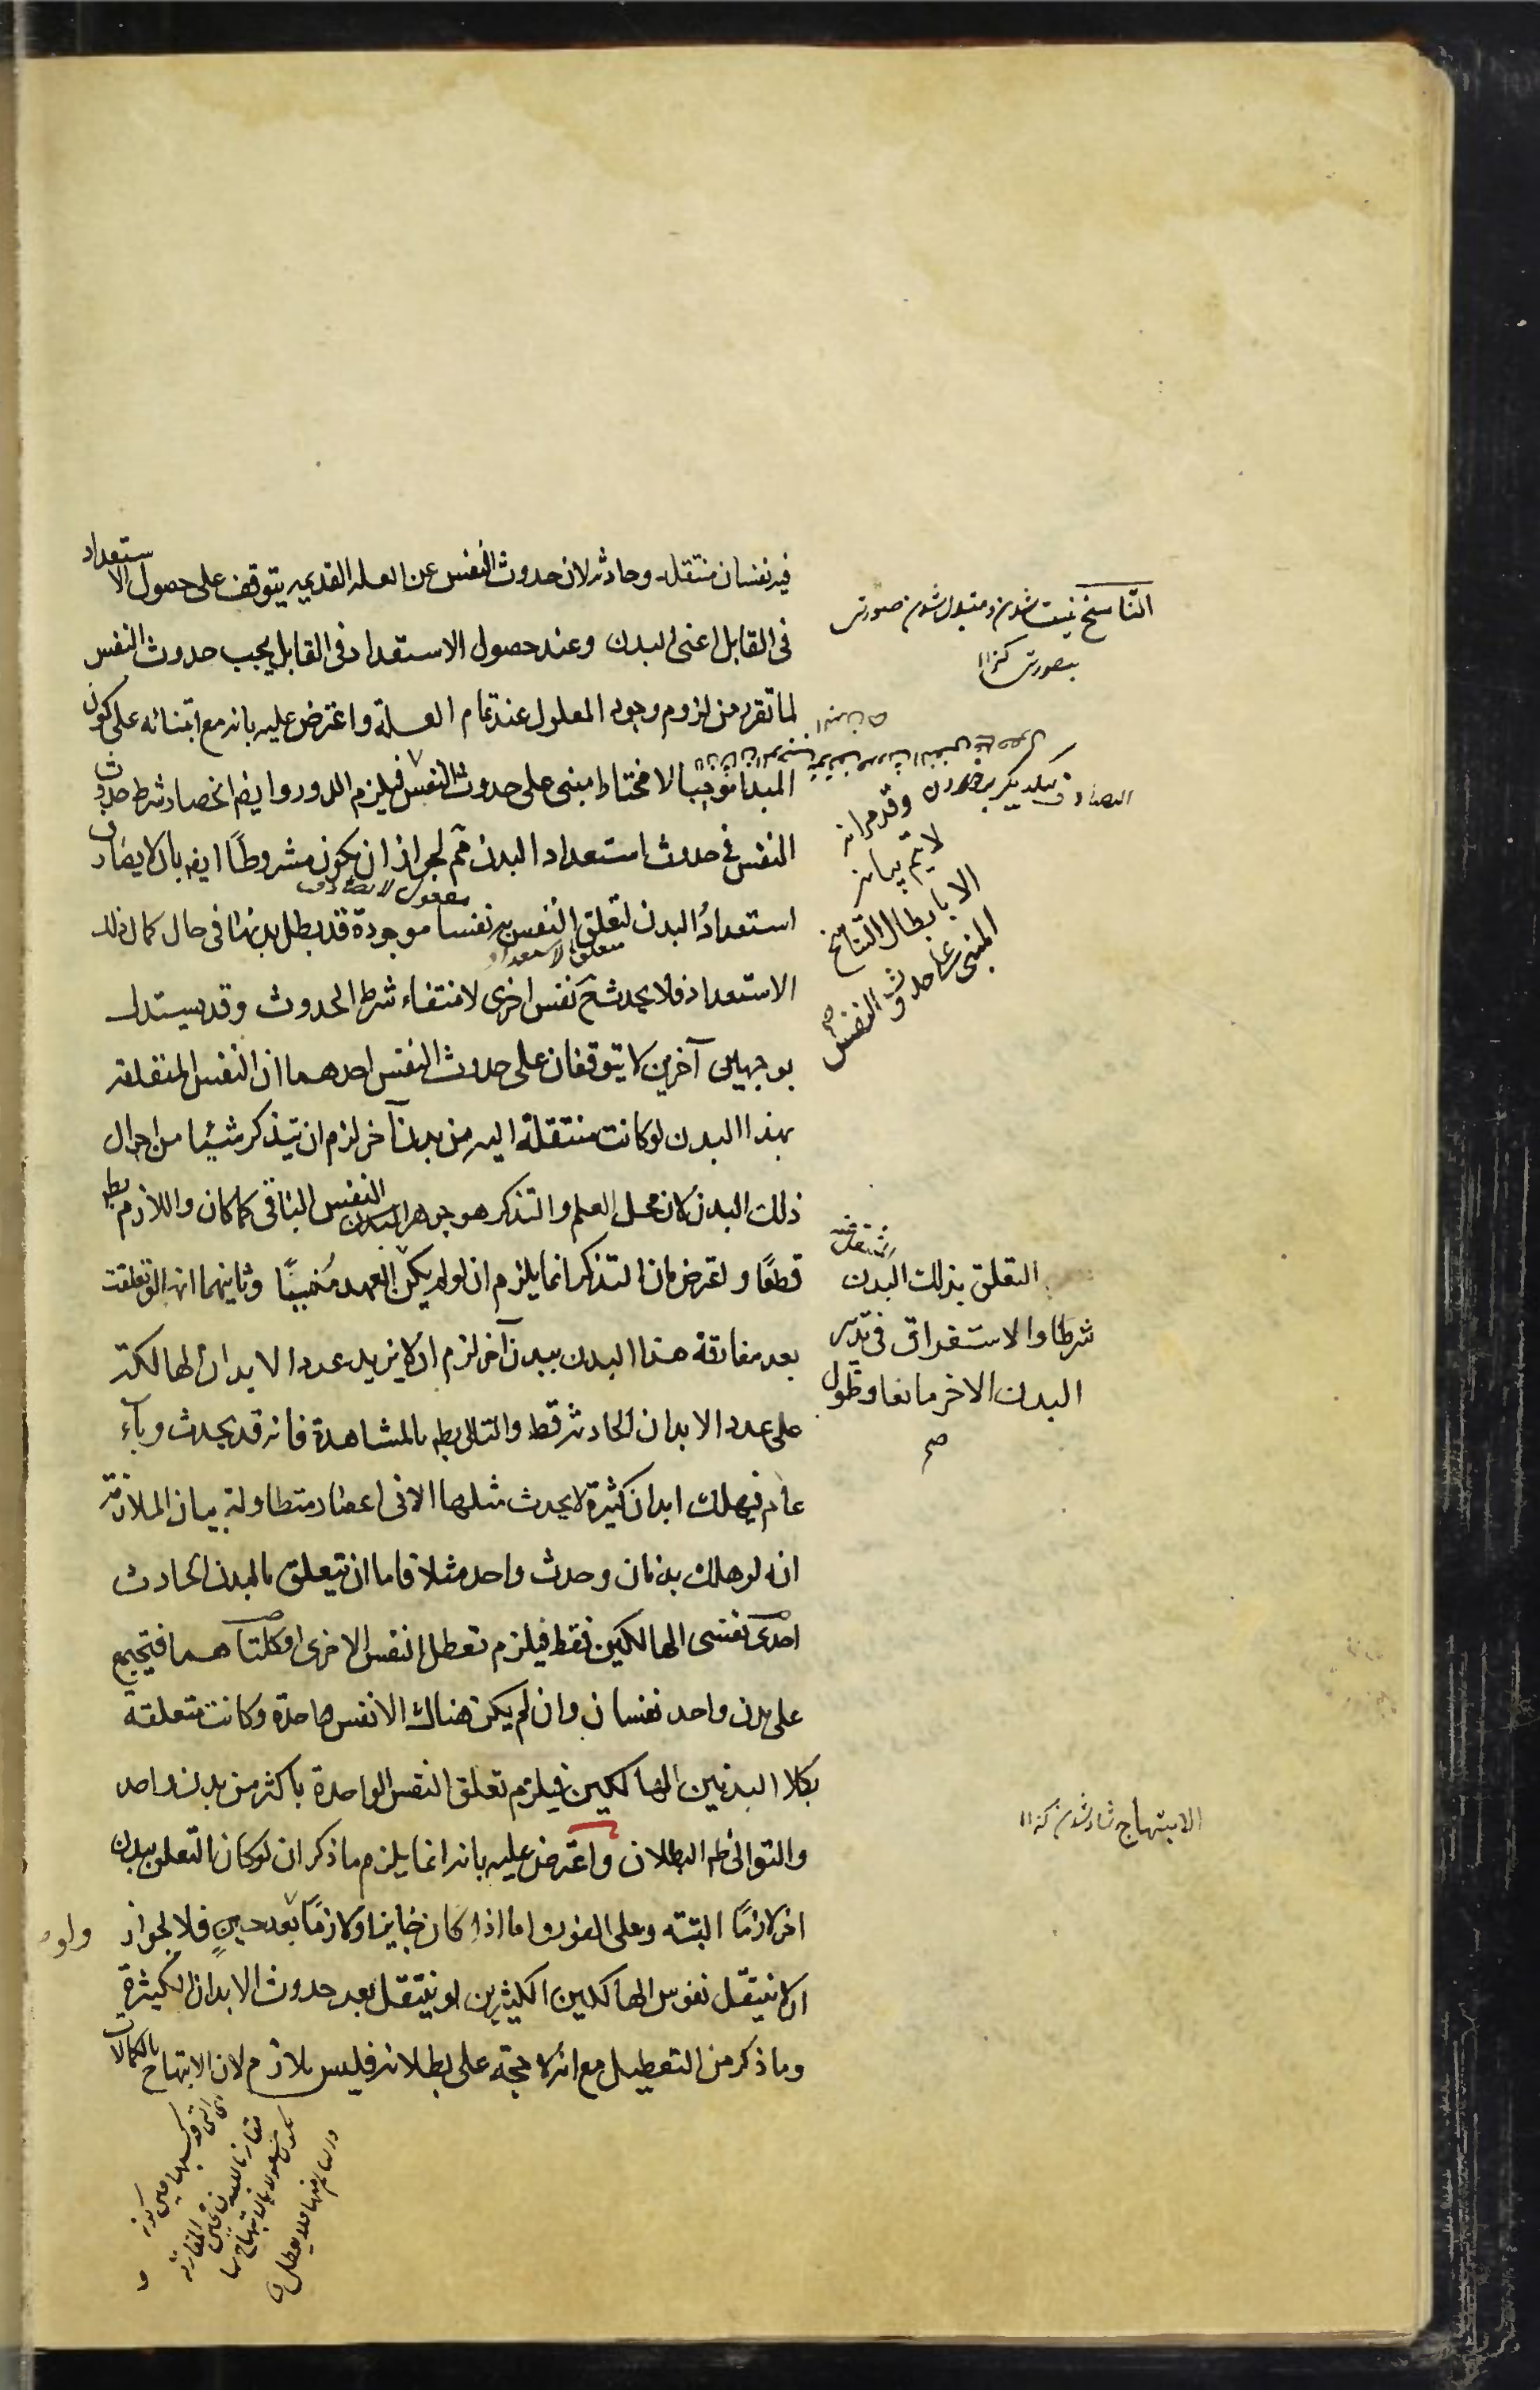 فيه نفسان منتقلة وحادثه لان حدوث النفس عن العله القديمه يتوقف على حصول الاستعداد
فى القابل اعنى البدن وعند حصول الاستعداد فى القابل يجب حدوث النفس
لما تقرر من لزوم وجود المعلول عند تمام العلة واعترض عليه بانه مع ابتنائه على كون
المبدأ موجبا لا مختارا مبنى على حدوث النفس فيلزم الدور وايضا انحصار شرط حدوث
النفس فى حدوث استعداد البدن مم لجواز ان يكون مشروطًا ايضا بان لا يصادف
استعدادُ البدن لتعلق النفس به نفسا موجودة قد بطل بدنها فى حال كمال ذلك
الاستعداد فلا يحدث ح نفس اخرى لانتفاء شرط الحدوث وقد يستدل
بوجهين آخرين لا يتوقفان على حدوث النفس احدهما ان النفس المتعلقة
بهذا البدن لو كانت منتقلة اليه من بدن آخر لزم ان يتذكر شيئا من احوال
ذلك البدن لان محل العلم والتذكر هو جوهر النفس الباقى كما كان واللازم بط
قطعًا واعترض بان التذكر انما يلزم ان لو لم يكن
التعلق بذلك البدن
شرطا والاستغراق فى تدبير
البدن الاخر مانعا وطول
صح
العهد مُنسيًا وثانيهما انها لو تعلقت
بعد مفارقة هذا البدن ببدن آخر لزم ان لا يزيد عدد الابدان الهالكة
على عدد الابدان الحادثه قط والتالى بط بالمشاهدة فانه قد يحدث وبآء
عام فيهلك ابدان كثيرة لا يحدث مثلها الا فى اعصار متطاولة بيان الملازمة
انه لو هلك بدنان وحدث واحد مثلا فاما ان يتعلق بالبدن الحادث
احدى نفسى الهالكين فقط فيلزم تعطل النفس الاخرى او كلتاهما فيجتمع
على بدن واحد نفسان وان لم يكن هناك الا نفس واحدة وكانت متعلقة
بكلا البدنين الهالكين فيلزم تعلق النفس الواحدة باكثر من بدن واحد
والتوالى ظ البطلان واعترض عليه بانه انما يلزم ما ذكر ان لو كان التعلق ببدن
اخر لازمًا البتته وعلى الفور واما اذا كان جايزا او لازمًا بعد حينٍ فلا لجواز
ان لا ينتقل نفوس الهالكين الكثيرين او ينتقل بعد حدوث الابدان الكثيرة
وما ذكر من التعطيل مع انه لا حجة على بطلانه فليس بلازم لان الابتهاج بالكمالات
التناسخ نيست شدن و متبدل شدن صورتى
بصورتى كنز ١١
المصادف يكديكر برخوردن
وقد مر انه
لا يتم بيانه
الا بابطال التناسخ
المبنى على حدوث النفس
صح
مفعول لا يصادف
متعلق لاستعداد
الابتهاج شاد شدن كنز ١١
ولو